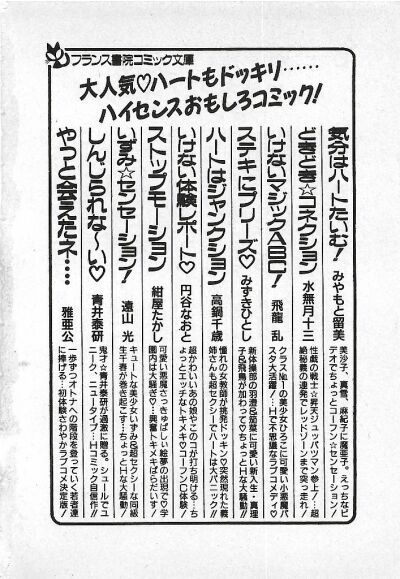 フランス書院コミック文庫
大人気♡ハートもドッキリ……
ハイセンスおもしろコミック!
気分はハートたいむ! みやもと留美
美沙子、真雪、麻紀子に魔亜子。えっちなビ
デオでちょっとコーフン☆センセーション!
どきどき☆コネクション 水無月十三
性戯の戦士☆昇天ジュッパツマン参上!…超
絶秘義の連発でレッドゾーンまで突っ走れ!
いけないマジックABC! 飛龍 乱
クラスNo.1の美少女ひろこに可愛い小悪魔パ
スタ大活躍!…Hで不思議なラブコメディ♡
ステキにプリーズ♡ みずきひとし
新体操部の羽澄&茄菜に可愛い新入生・真理
子&飛鳥が加わって♡ちょっとHな大騒動!
ハートはジャンクション 高鍋千歳
憧れの女教師が挑発ドッキン♡突然現れた義
姉さんも超セクシーでハートは大パニック!!
いけない体験レポート♡ 円谷なおと
超かわいいあの娘やこのコが打ち明ける…ち
ょっとエッチなトキメキ♡コーフンC体験!
ストップモーション 紺屋たかし
可愛い悪魔さっきゅばしい絵夢の出現で♡学
園内は大騒ぎ♡…興奮トキメキばらだいす!
いずみ☆センセーション! 遠山 光
キュートな美少女いずみ&超セクシーな同級
生千春が巻き起こす…ちょっとHな大騒動!
しんじられな〜い♡ 青井泰研
鬼才☆青井泰研が過激に贈る。シュールでユ
ニーク、ニュータイプ…Hコミック自信作!!
やっと会えたネ… 雅亜公
一歩ずつオトナへの階段を登っていく若者達
に捧げる…初体験さわやかラブコメ決定版!